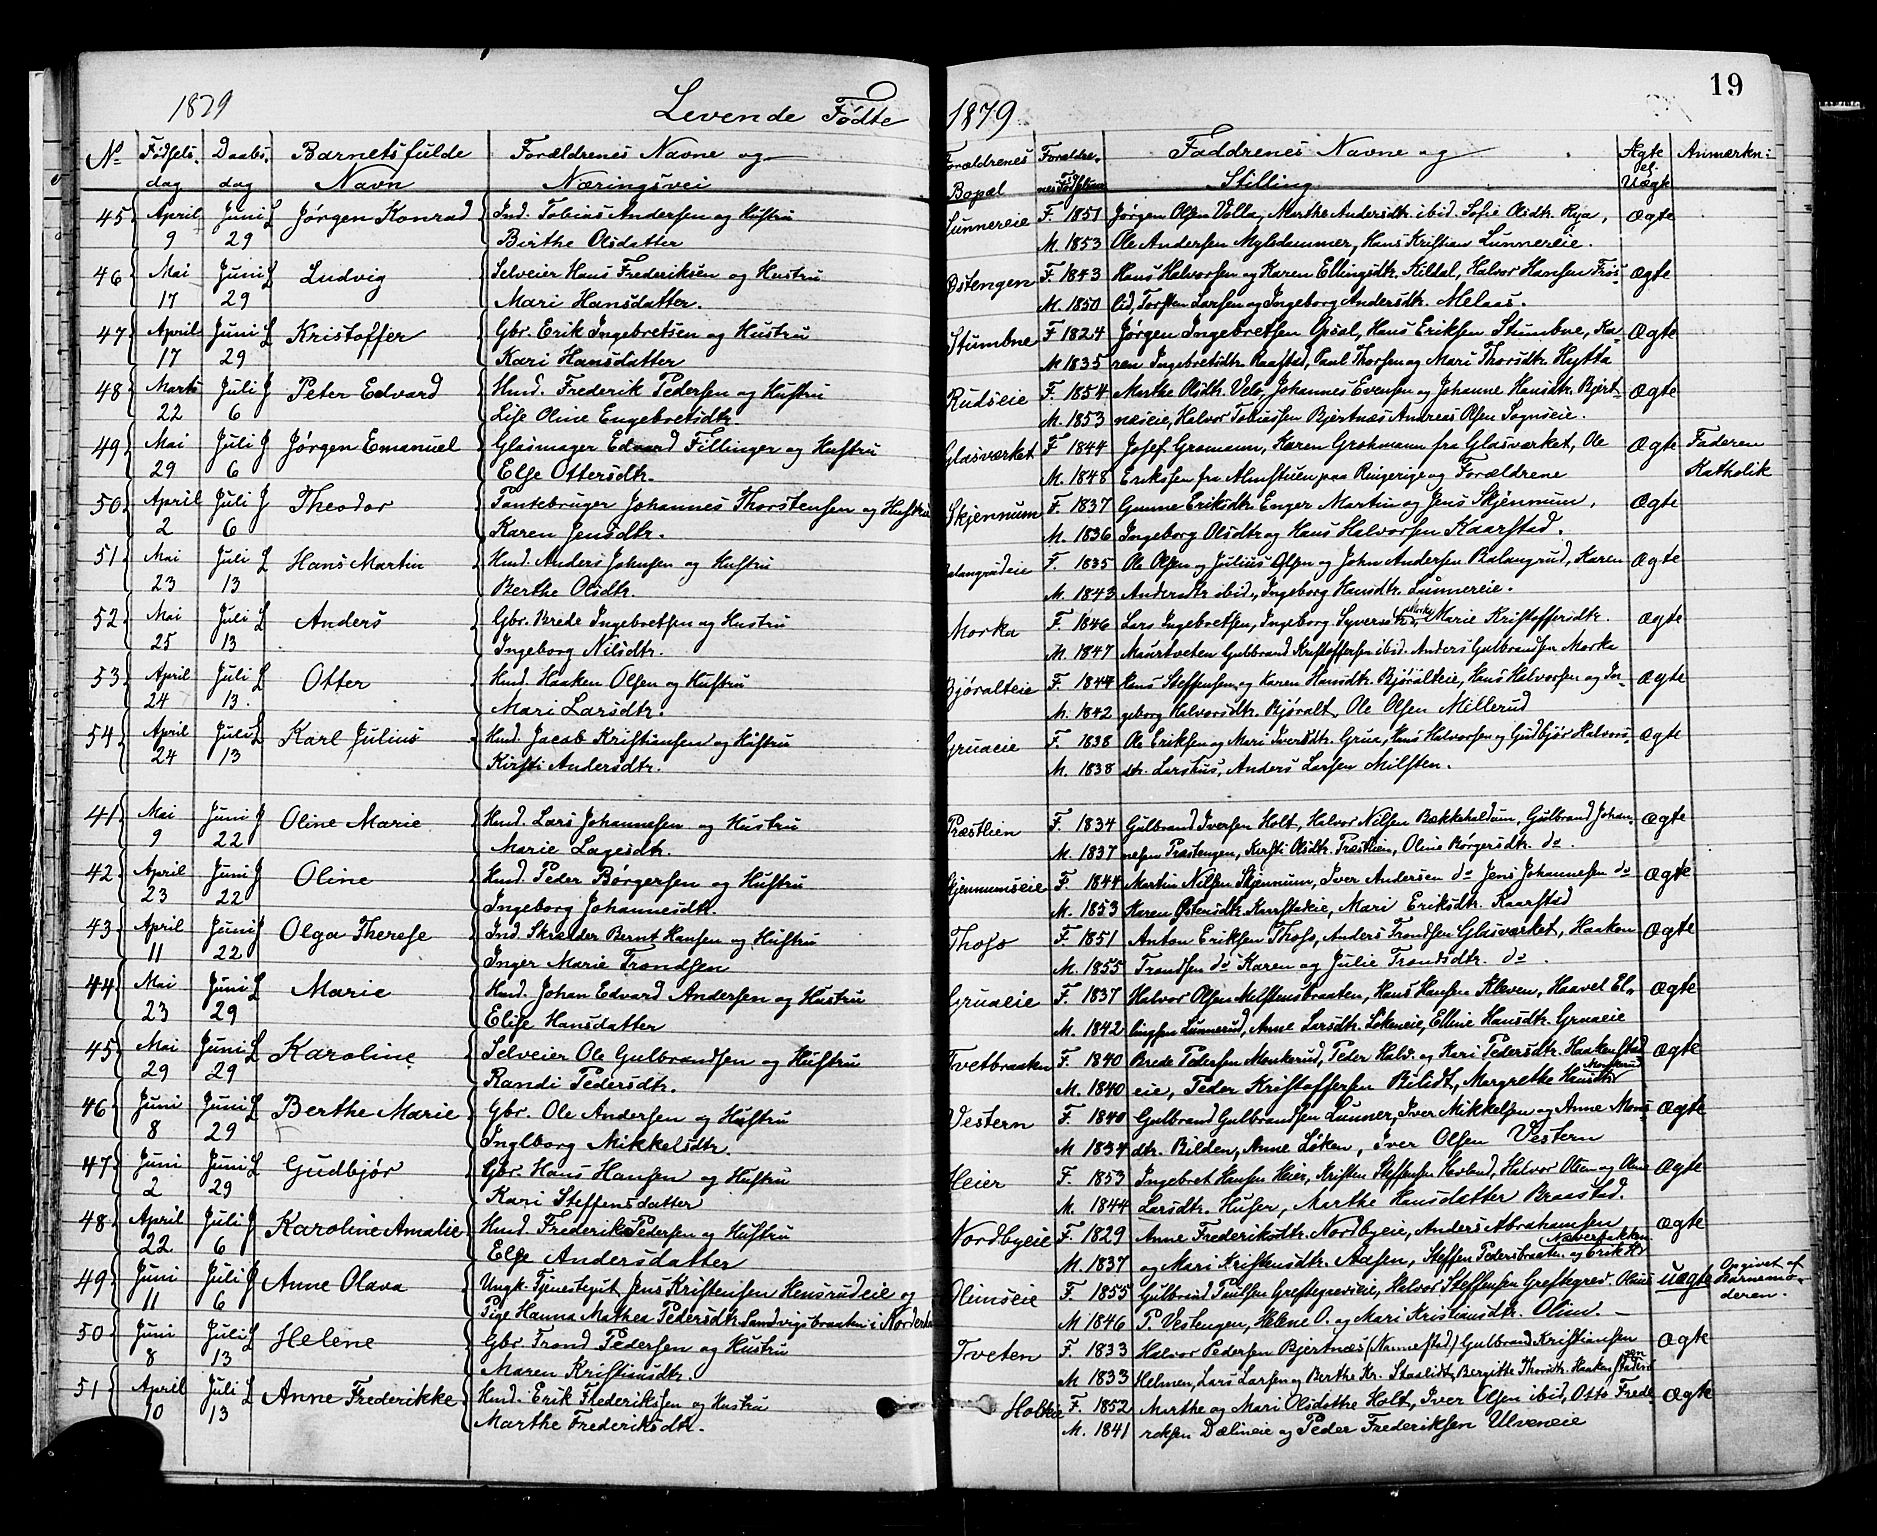 1879 Levende Fødte 1879 19
No Fødsels- Daabs- Barnets fulde Forældrenes Navne og Forældrenes Forældre- Faddrenes Navne og Ægte Anmærkn:
dag dag Navn Næringsvei Bopæl nes Fødselsaar Stilling el. Uægte
45 April Juni L Jørgen Konrad Ind. Tobias Andersen og Hustru Lunnereie F. 1851 Jørgen Olsen Volla, Marthe Andersdtr. ibid. Sofie Olsdtr. Rya, Ægte
9 29 Birthe Olsdatter M. 1853 Ole Andersen Myledemmer, Hans Kristian Lunnereie.
46 Mai Juni L Ludvig Selveier Hans Frederiksen og Hustru Østengen F. 1843 Hans Halvorsen og Karen Ellingsdtr. Kildal, Halvor Hansen Frøs- Ægte
17 29 Mari Hansdatter. M. 1850 lid, Torsten Larsen og Ingeborg Andersdtr. Melaas.
47 April Juni L Kristoffer Gbr. Erik Ingebretsen og Hustru Stumbne F. 1824 Jørgen Ingebretsen Opsal, Hans Eriksen Stumbne, Ka- Ægte
17 29 Kari Hansdatter M 1835 ren Ingebretsdtr. Raastad, Paul Thorsen og Mari Thorsdtr. Hytta
48 Marts Juli J Peter Edvard Hmd. Frederik Pedersen og Hustru Rudseie F. 1854 Marthe Olsdtr. Velo, Johannes Evensen og Johanne Hansdtr. Bjert- Ægte
22 6 Lise Oline Engebretsdtr. M. 1853 næseie, Halvor Tobiassen Bjertnæs Andreas Olsen Sognseie.
49 Mai Juli J Jørgen Emanuel Glasmager Edvard Fillinger og Hustru Glasværket F 1844 Josef Gromann, Karen Grohmann fra Glasværket, Ole Ægte Faderen
29 6 Else Ottersdtr. M. 1848 Eriksen fra Almstuen paa Ringerige og Forældrene Katholik
50 April Juli J Theodor Pantebruger Johannes Thorstensen og Hustru Skjennum F. 1837 Gunne Eriksdtr. Enger Martin og Jens Skjennum, Ægte
2 6 Karen Jensdtr. M. 1836 Ingeborg Olsdtr. og Hans Halvorsen Kaarstad.
51 Mai Juli L Hans Martin Hmd. Anders Johnsen og Hustru Balangrudeie F. 1835 Ole Olsen og Julius Olsen og John Andersen Balangrud, Karen Ægte
23 13 Berthe Olsdtr. M. 1843 Andersdtr ibid., Ingeborg Hansdtr. Lunnereie.
52 Mai Juli L Anders Gbr. Brede Ingebretsen og Hustru Morka F. 1846 Lars Ingebretsen, Ingeborg Syvers Marie Kristoffersdtr. Ægte
25 13 Ingeborg Nilsdtr. M. 1847 Maurtveten Gulbrand Kristoffersen ibid. Anders Gulbrandsen Morka
53 April Juli L Otter Hmd. Haaken Olsen og Hustru Bjøralteie F. 1844 Hans Steffensen og Karen Hansdtr. Bjøralteie, Hans Halvorsen og In- Ægte
24 13. Mari Larsdtr. M. 1842 geborg Halvorsdtr. Bjøralt, Ole Olsen Millerud
54 April Juli L Karl Julius Hmd. Jacob Kristiansen og Hustru Gruaeie F. 1838 Ole Eriksen og Mari Iversdtr. Grua, Hans Halvorsen og Gudbjør Halvors- Ægte
24 13 Kirsti Andersdtr. M. 1838 dtr. Larshus, Anders Larsen Milsten.
41 Mai Juni J Oline Marie Hmd. Lars Johannesen og Hustru Præstlien F. 1834 Gulbrand Iversen Holt, Halvor Nilsen Bækkehaldum, Gulbrand Johan- Ægte
9 22 Marie Lagesdtr. M. 1837 nesen Præstengen, Kirsti Olsdtr. Præstlien, Oline Børgersdtr. do.
42 April Juni J Oline Hmd. Peder Børgersen og Hustru Skjennumseie F 1844 Martin Nilsen Skjennum, Iver Andersen do Jens Johannesen do Ægte
23 22 Ingeborg Johannesdtr. M. 1853 Karen Østensdtr. Kaarstadeie, Mari Eriksdtr. Kaarstad
43 April Juni J Olga Therese Ind. Skrædder Bernt Hansen og Hustru Thoso F. 1851 Anton Eriksen Thoso, Anders Trondsen Glasværket, Haaken Ægte
11 22 Inger Marie Trondsen M. 1855 Trondsen do Karen og Julie Trondsdtr. do.
44 Mai Juni L Marie Hmd. Johan Edvard Andersen og Hustru Gruaeie F. 1837 Halvor Olsen Milstensbraaten, Hans Hansen Kleven, Haavel El- Ægte
23 29 Elise Hansdatter M. 1842 lingsen Lunnerud, Anne Larsdtr. Løkeneie, Elline Hansdtr. Gruaeie
45 Mai Juni L Karoline Selveier Ole Gulbrandsen og Hustru Tvetbraaten F. 1840 Brede Pedersen Monkerud, Peder Halv. og Kari Pedersdtr. Haakenstad Ægte
29 29 Randi Pedersdtr. M. 1840 eie, Peder Kristoffersen Bilidt, Margrethe Hansdtr Monkerud
46 Juni Juni L Berthe Marie Gbr. Ole Andersen og Hustru Vestern F. 1840 Gulbrand Gulbrandsen Lunner, Iver Mikkelsen og Anne Mons- Ægte
8 29 Ingeborg Mikkelsdtr. M 1834 dtr. Bilden, Anne Løken, Iver Olsen Vestern
47 Juni Juni L Gudbjør Gbr. Hans Hansen og Hustru Heier F. 1853 Ingebret Hansen Heier, Kristen Steffensen Hovland, Halvor Olsen og Oline Ægte
2 29 Kari Steffensdatter M. 1844 Larsdtr. Huser, Marthe Hansdatter Braastad.
48 April Juli J Karoline Amalie Hmd. Frederik Pedersen og Hustru Nordbyeie F. 1829 Anne Frederiksdtr. Nordbyeie, Anders Abrahamsen Ægte
22 6 Else Andersdatter M. 1837 og Mari Kristensdtr. Aasen, Steffen Pedersbraaten og Erik
49 Juni Juli J Anne Olava Ungk. Tjenestegut Jens Kristensen Hensrudeie og Olimseie F. 1855 Gulbrand Paulsen Greftegreveie, Halvor Steffensen Greftegrev Oline Uægte Opgivet af Barnemo-
11 6 Pige Hanna Mathea Pedersdtr. Sandvigsbraaten i Norderhov M 1846 P. Vestengen, Helene O. og Mari Kristiansdtr. Olim. deren.
50 Juni Juli L Helene Gbr. Trond Pedersen og Hustru Tveten F. 1833 Halvor Pedersen Bjertnæs (Nannestad) Gulbrand Kristiansen Ægte
8 13 Maren Kristiansdtr. M. 1833 Helmen, Lars Larsen og Berthe Kr. Staalidt, Bergitte Thorsdtr. Haaken
51 April Juli L Anne Frederikke Hmd. Erik Frederiksen og Hustru Holteie F. 1852 Marthe og Mari Olsdøttre Holt, Iver Olsen ibid, Otto Frede- Ægte
10 13 Marthe Frederiksdtr. M. 1841 riksen Dælineie og Peder Frederiksen Ulveneie